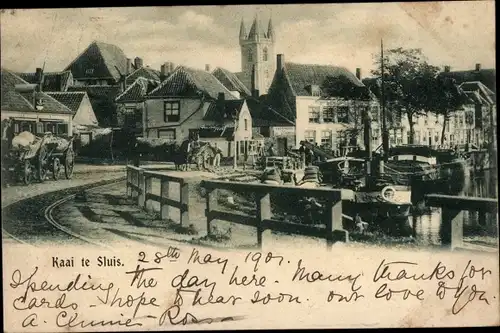 Kaai te Sluis. 28th May 1901.
Spending the day here. Many thanks for
cards. I hope to hear soon. our love to you
Ross